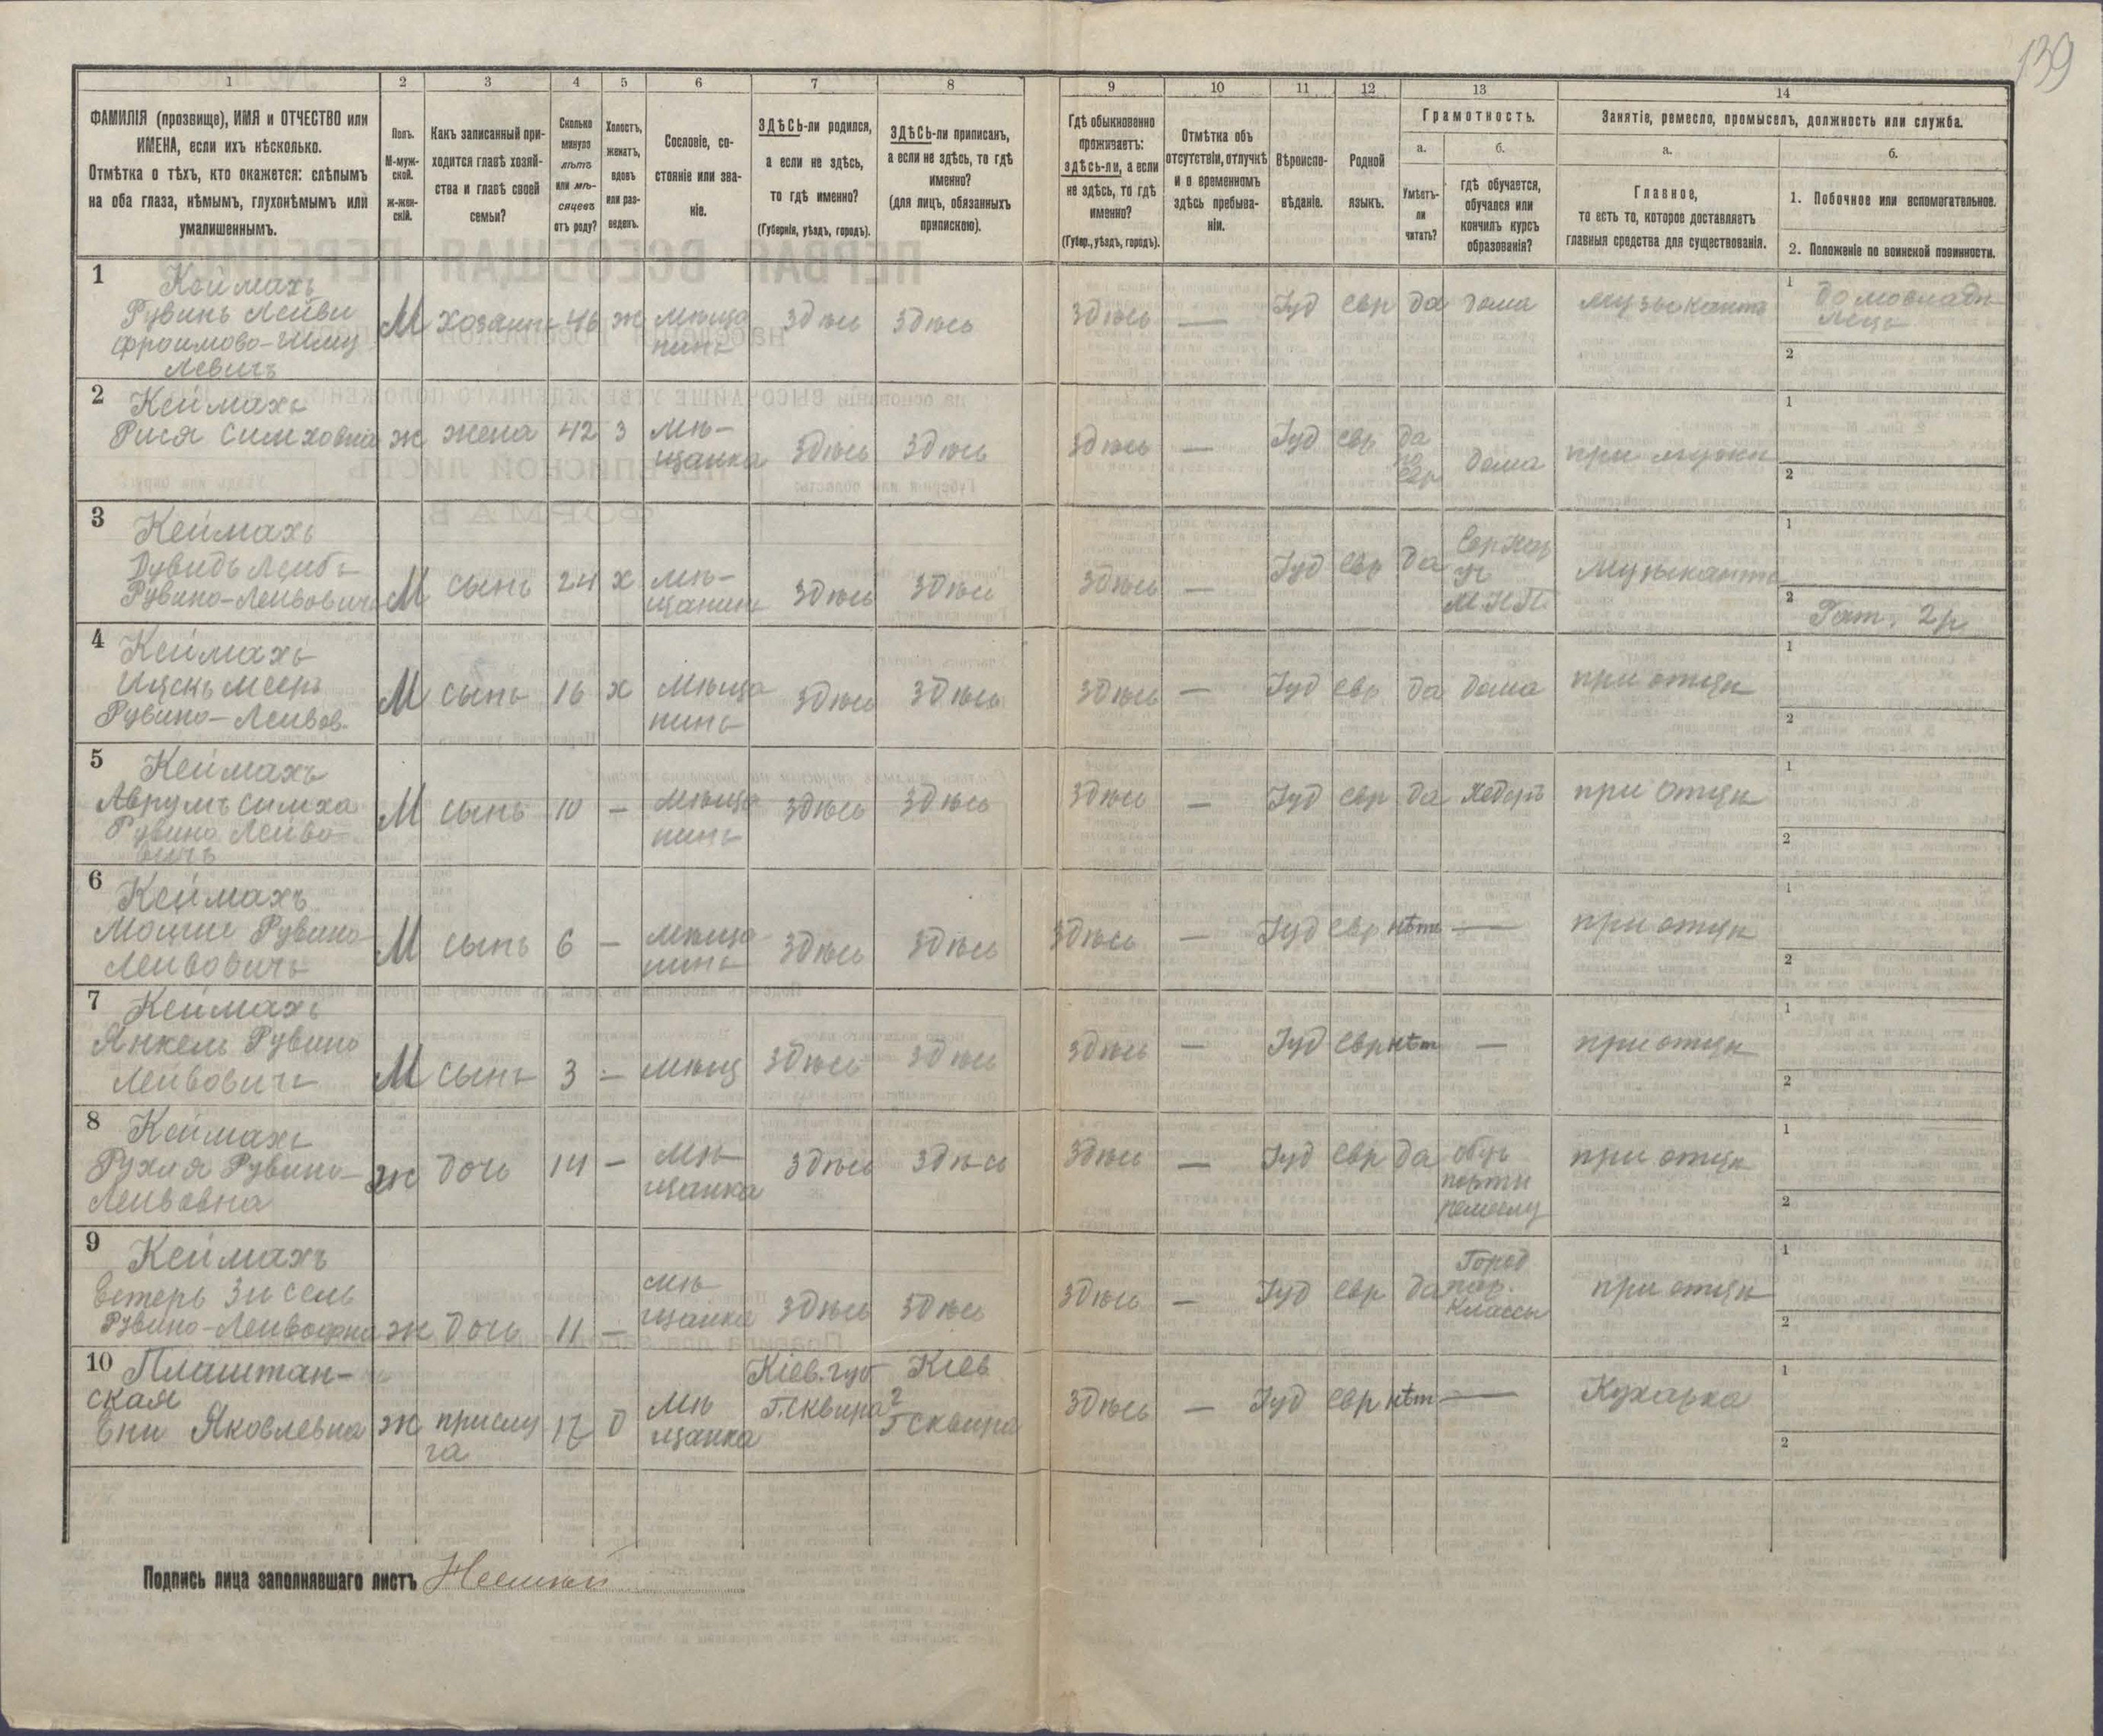 139
1 2 3 4 5 6 7 8 9 10 11 12 13 14
ФАМИЛІЯ (прозвище), ИМЯ и ОТЧЕСТВО или
ИМЕНА, если ихъ нѣсколько.
Отмѣтка о тѣхъ, кто окажется: слѣпымъ
на оба глаза, нѣмымъ, глухонѣмымъ или
умалишеннымъ.
Полъ.
М-муж-
ской.
ж-жен-
скій.
Какъ записанный при-
ходится главѣ хозяй-
ства и главѣ своей
семьи?
Сколько
минуло
лѣтъ
или мѣ-
сяцевъ
отъ роду?
Холостъ,
женатъ,
вдовъ
или раз-
веденъ.
Сословіе, со-
стояніе или зва-
ніе.
ЗДѢСЬ-ли родился,
а если не здѣсь,
то гдѣ именно?
(Губернія, уѣздъ, городъ).
ЗДѢСЬ-ли приписанъ,
а если не здѣсь, то гдѣ
именно?
(для лицъ, обязанныхъ
припискою).
Гдѣ обыкновенно
проживаетъ:
здѣсь-ли, а если
не здѣсь, то гдѣ
именно?
(Губер., уѣздъ, городъ).
Отмѣтка объ
отсутствіи, отлучкѣ
и о временномъ
здѣсь пребыва-
ніи.
Вѣроиспо-
вѣданіе.
Родной
языкъ.
Грамотность.
а.
Умѣетъ-
ли
читать?
б.
гдѣ обучается,
обучался или
кончилъ курсъ
образованія?
Занятіе, ремесло, промыселъ, должность или служба.
а.
Главное,
то есть то, которое доставляетъ
главныя средства для существованія.
б.
1. Побочное или вспомогательное.
2. Положеніе по воинской повинности.
1 Кеймахъ
Рувинъ Лейви
Фроимово-Шму
левичъ
М хозаинъ 46 ж мѣща
нинъ
здѣсь здѣсь здѣсь — Іуд евр да дома музыкантъ
1 домовладѣ
лецъ
2
2 Кеймахъ
Рися Симховна
ж жена 42 з мѣ-
щанка
здѣсь здѣсь здѣсь — Іуд евр да
по
евр
дома при мужѣ
1
2
3 Кеймахъ
Дувидъ Лейбъ
Рувино-Лейвовичъ
М сынъ 24 х мѣ-
щанинъ
здѣсь здѣсь здѣсь — Іуд евр да
уч
М.Н.П.
Музыкантъ
1
2 Рат. 2 р
4 Кеймахъ
Ицекъ Мееръ
Рувино-Лейвов.
М сынъ 16 х мѣща
нинъ
здѣсь здѣсь здѣсь — Іуд евр да дома при отцѣ
1
2
5 Кеймахъ
Аврумъ Симха
Рувино Лейво
вичъ
М сынъ 10 — мѣща
нинъ
здѣсь здѣсь здѣсь — Іуд евр да хедеръ при отцѣ
1
2
6 Кеймахъ
Мошше Рувино-
Лейвовичъ
М сынъ 6 — мѣща
нинъ
здѣсь здѣсь здѣсь — Іуд евр нѣтъ — при отцѣ
1
2
7 Кеймахъ
Янкель Рувино
Лейвовичъ
М сынъ 3 — мѣщ здѣсь здѣсь здѣсь — Іуд евр нѣт — при отцѣ
1
2
8 Кеймахъ
Рухля Рувино-
Лейвовна
ж дочь 14 — мѣ
щанка
здѣсь здѣсь здѣсь — Іуд евр да обуч
портн
ремеслу
при отцѣ
1
2
9 Кеймахъ
Естеръ Зисель
Рувино-Лейвофна
ж дочь 11 — мѣ
щанка
здѣсь здѣсь здѣсь — Іуд евр да Город
пар.
классы
при отцѣ
1
2
10 Плаштан-
ская
Ени Яковлевна
ж прислу
га
17 д мѣ
щанка
Кіев. губ
Г. Сквира
Кіев
г Сквира
здѣсь — Іуд евр нѣт — Кухарка
1
2
Подпись лица заполнявшаго листъ